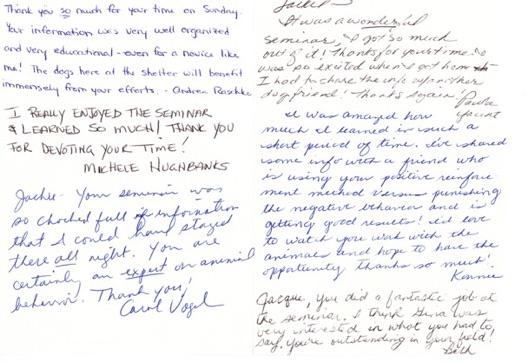 Thank you so much for your time on Sunday.
Your information was very well organized
and very educational - even for a novice like
me! The dogs here at the shelter will benefit
immensely from your efforts. - Andrea Raschke
I REALLY ENJOYED THE SEMINAR
& LEARNED SO MUCH! THANK YOU
FOR DEVOTING YOUR TIME!
MICHELE HUGHBANKS
Jackie - Your seminar was
so chocked full of information
that I could have stayed
there all night. You are
certainly an expert on animal
behavior. Thank you!
Carol Vogel
It was a wonderful
seminar, I got so much
out of it! Thanks for your time. I
was so excited when I got home
I had to share the info w/another
dog friend! Thanks again!
Paula
I was amazed how
much I learned in such a
short period of time. I've shared
some info with a friend who
is using your positive reinforce
ment method versus punishing
the negative behavior and is
getting good results! I'd love
to watch you work with the
animals and hope to have the
opportunity. Thanks so much!
Kennie
Jacque, you did a fantastic job at
the seminar. I think Gina was
very interested in what you had to
say. You're outstanding in your field!
Beth